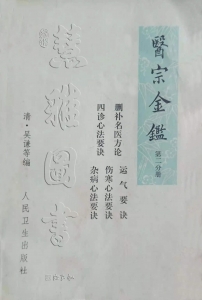 醫宗金鑑
第二分册
删补名医方论
四诊心法要诀
运气要诀
伤寒心法要诀
杂病心法要诀
清·吴谦等编
人民卫生出版社